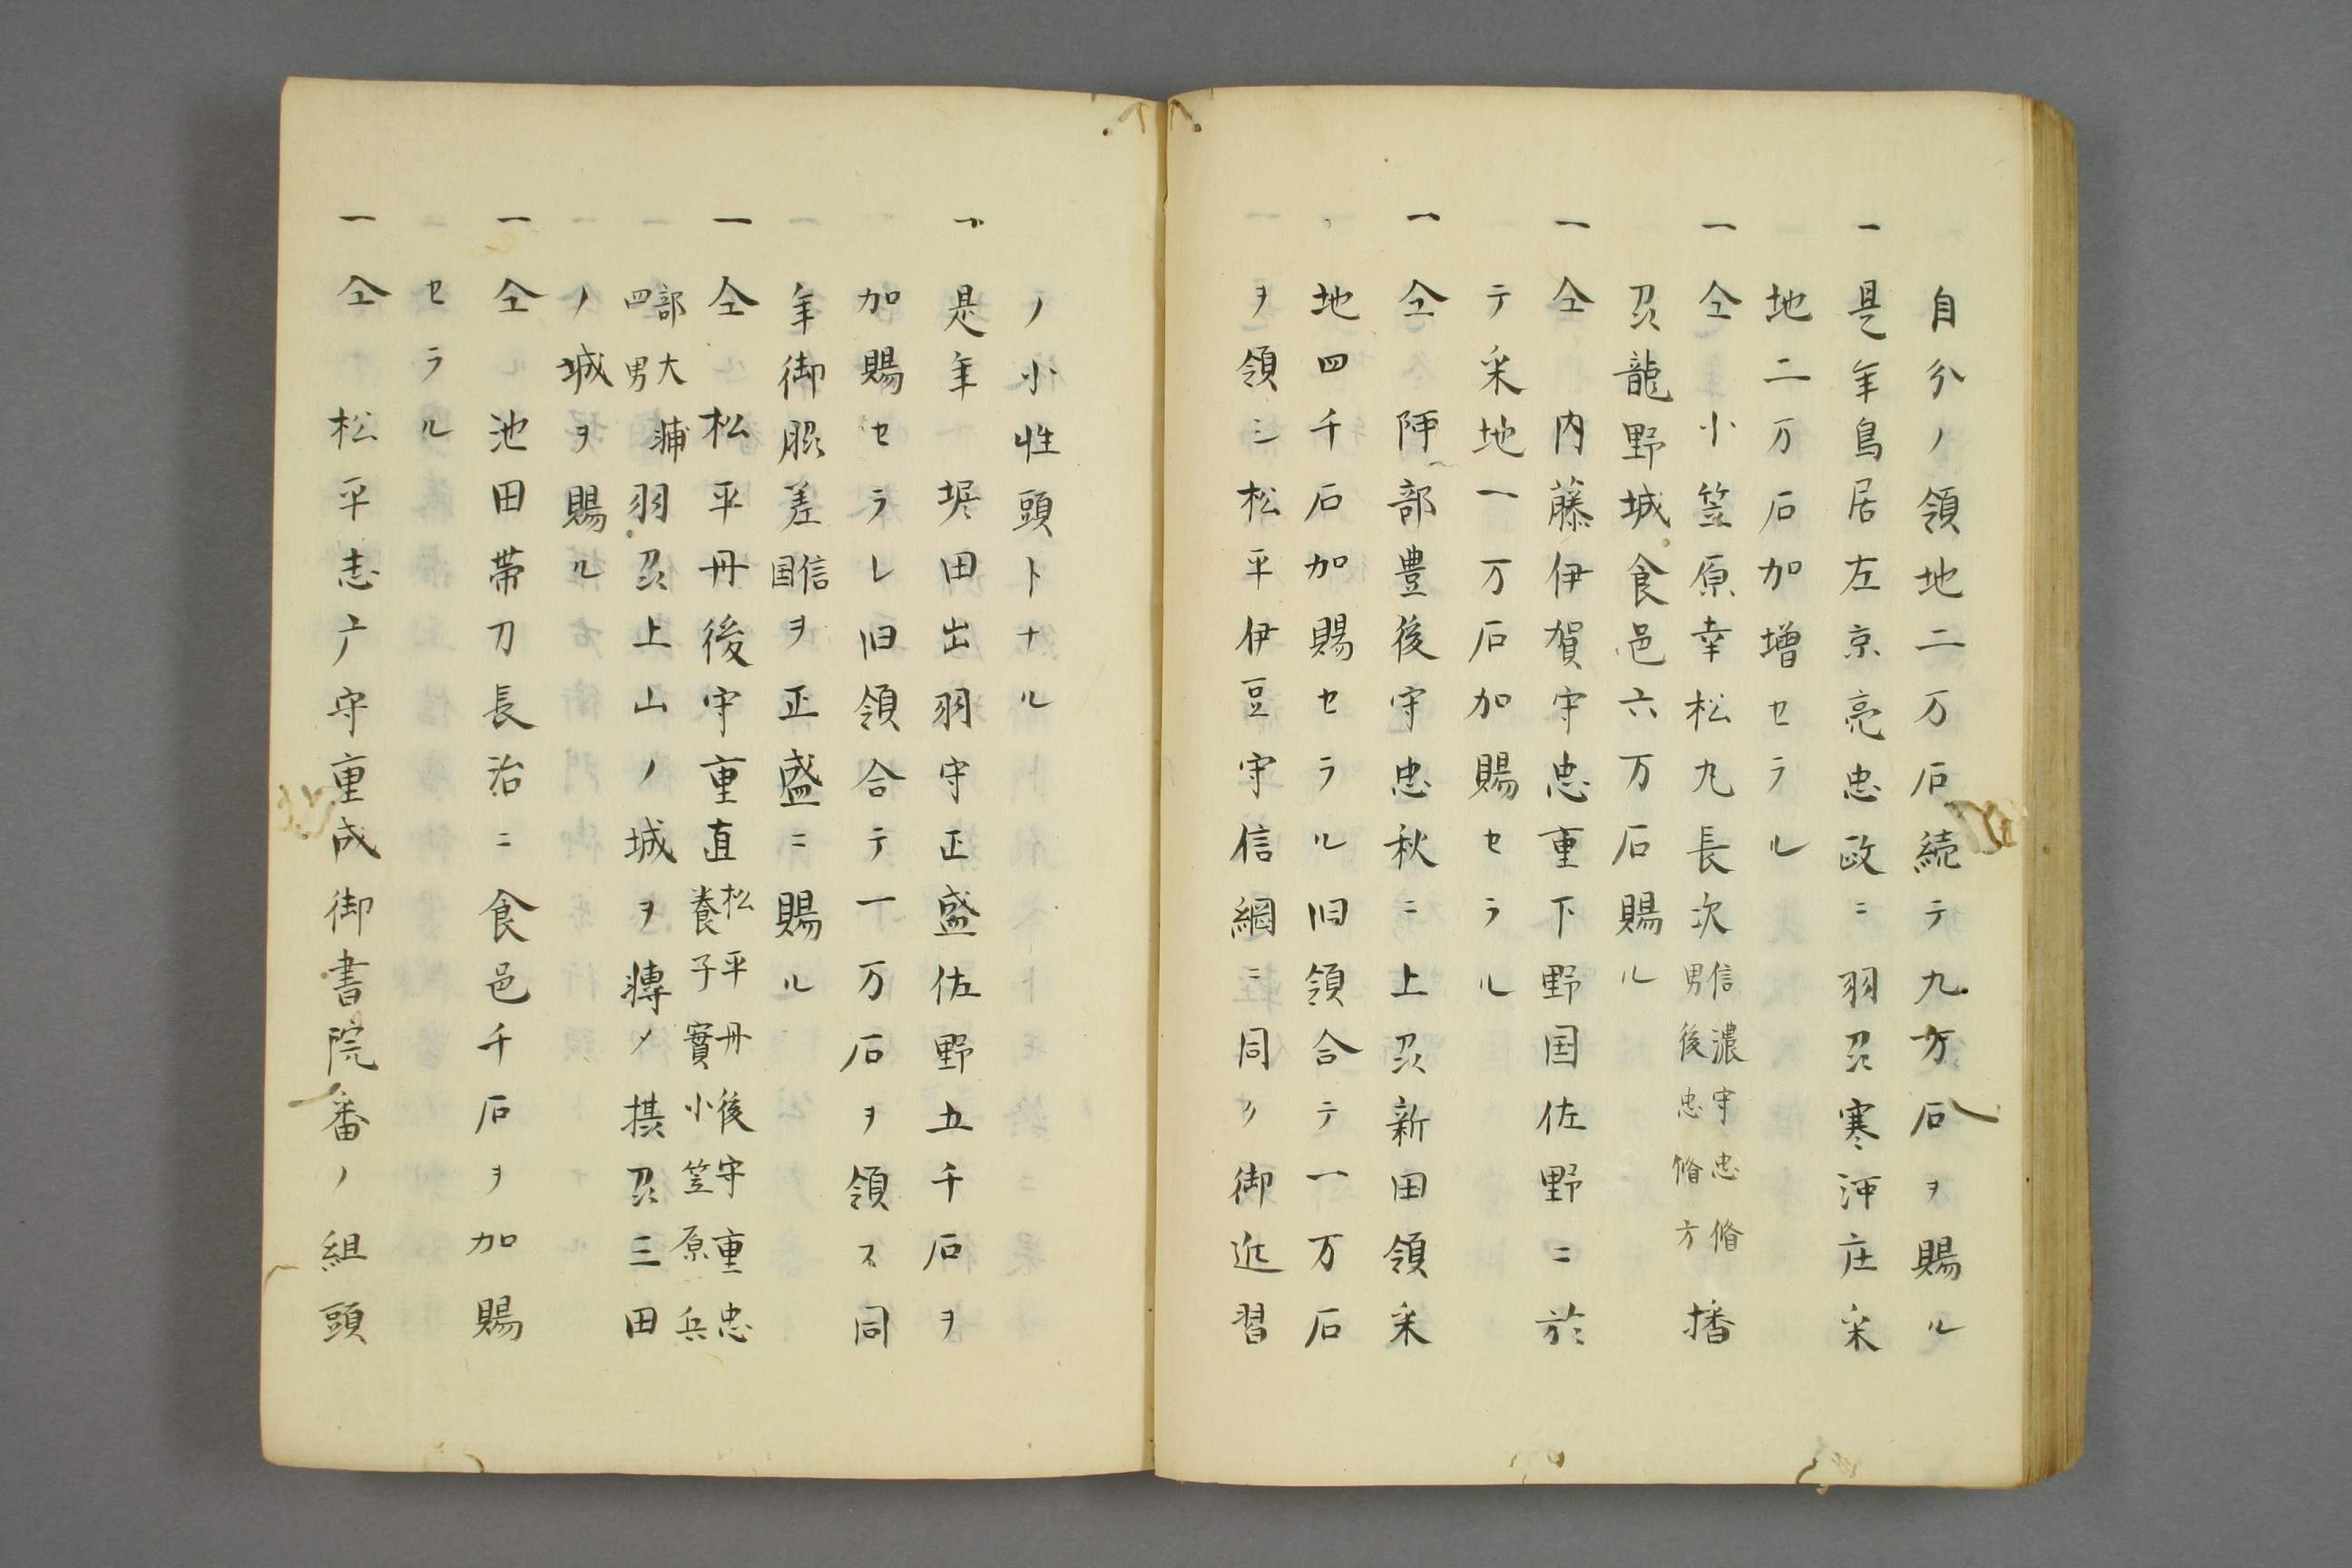 自分ノ領地二万石続テ九万石ヲ賜ル
一是年鳥居左京亮忠政ニ羽州寒河庄采
地二万石加増セラル
一仝小笠原幸松丸長次信濃守忠脩男後忠脩方播
州龍野城食邑六万石賜ル
一仝内藤伊賀守忠重下野国佐野ニ於
テ采地一万石加賜セラル
一仝阿部豊後守忠秋ニ上州新田領采
地四千石加賜セラル旧領合テ一万石
ヲ領シ松平伊豆守信綱ニ同ク御近習
ノ小性頭トナル
一是年堀田出羽守正盛佐野五千石ヲ
加賜セラレ旧領合テ一万石ヲ領ス同
年御脇差信国ヲ正盛ニ賜ル
一仝松平丹後守重直松平丹後守重忠養子実小笠原兵
部大輔四男羽州上山ノ城ヲ転メ摂州三田
ノ城ヲ賜ル
一仝池田帯刀長治ニ食邑千石ヲ加賜
セラル
一仝松平志广守重成御書院番ノ組頭